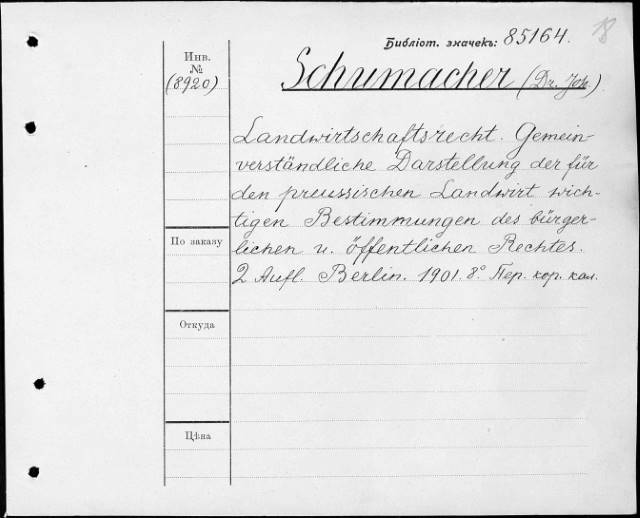 Библіот. значекъ: 85164. 18
Инв.
№
(8920)
Schumacher (Dr. Joh.)
Landwirtschaftsrecht. Gemein-
verständliche Darstellung der für
den preussischen Landwirt wich-
tigen Bestimmungen des bürger-
По заказу
lichen u. öffentlichen Rechtes.
2 Aufl. Berlin. 1901. 8° Пер. кор. кал.
Откуда
Цѣна